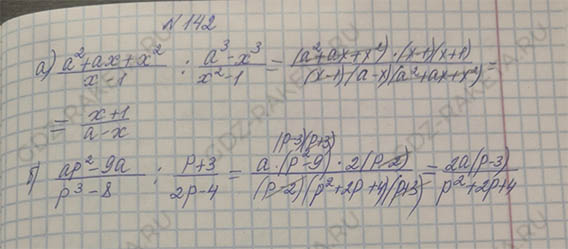 № 142
а) (a²+ax+x²)/(x-1) : (a³-x³)/(x²-1) = ((a²+ax+x²)·(x-1)(x+1))/((x-1)(a-x)(a²+ax+x²)) =
= (x+1)/(a-x)
б) (ap²-9a)/(p³-8) : (p+3)/(2p-4) = (a·(p²-9)·2(p-2))/((p-2)(p²+2p+4)(p+3)) = (2a(p-3))/(p²+2p+4)
(p-3)(p+3)
GDZ-RAKETA.RU